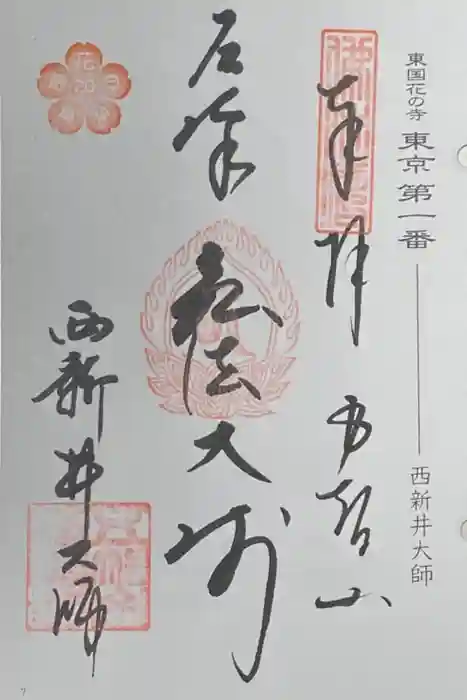 東国花の寺 東京第一番 西新井大師
奉拝 五智山
厄除 弘法大師
西新井大師
7